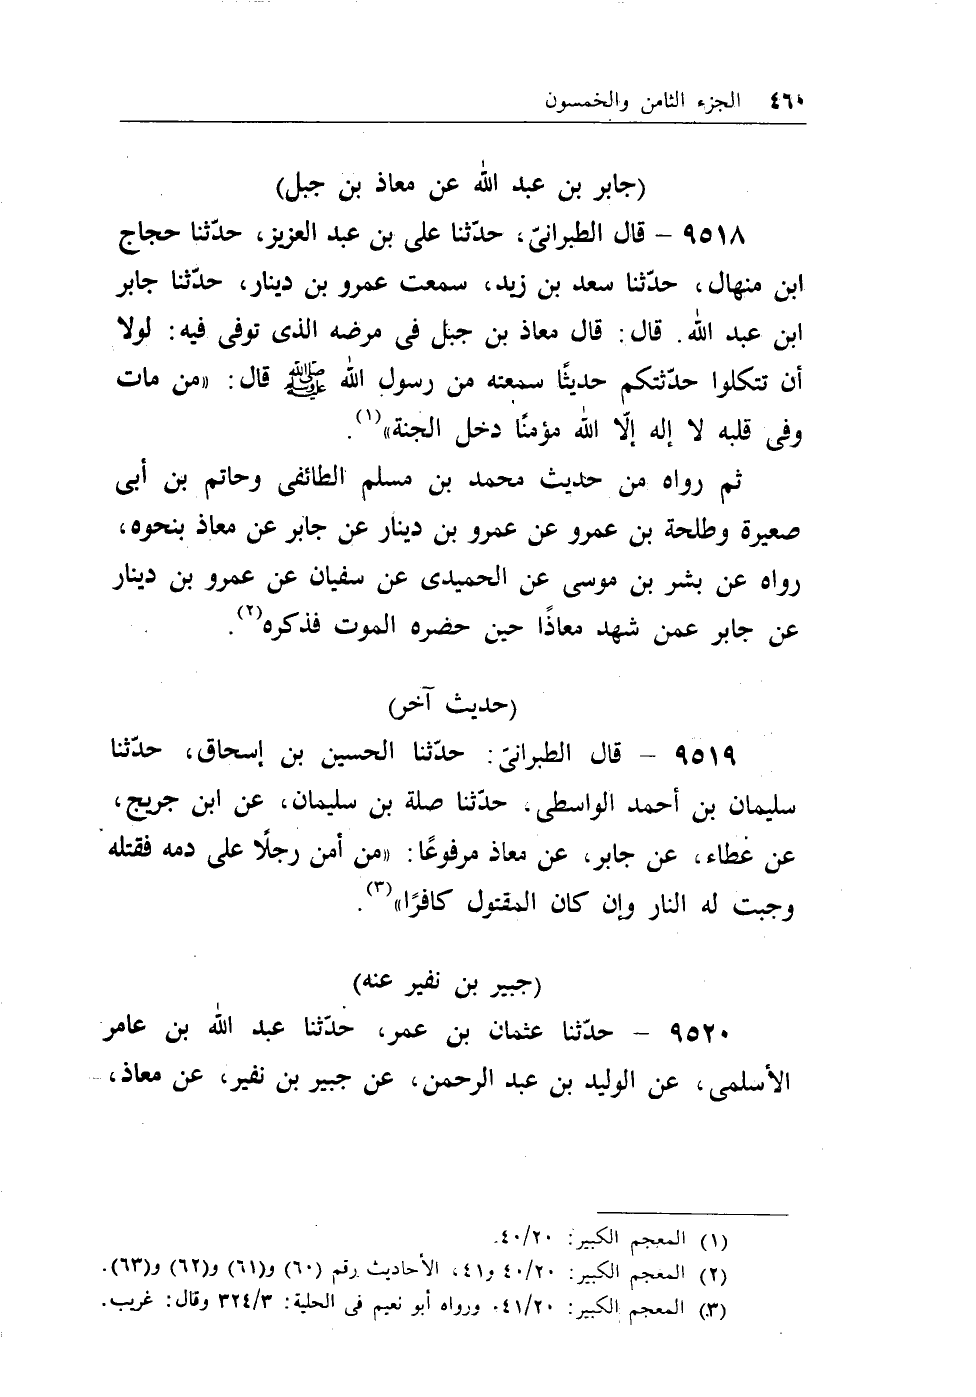 ٤٦٠ الجزء الثامن والخمسون
(جابر بن عبد الله عن معاذ بن جبل)
٩٥١٨ – قال الطبرانىّ، حدّثنا على بن عبد العزيز، حدّثنا حجاج
ابن منهال، حدّثنا سعد بن زيد، سمعت عمرو بن دينار، حدّثنا جابر
ابن عبد الله. قال: قال معاذ بن جبل فى مرضه الذى توفى فيه: لولا
أن تتكلوا حدّثتكم حديثًا سمعته من رسول الله ﷺ قال: «من مات
وفى قلبه لا إله إلّا الله مؤمنًا دخل الجنة»(١).
ثم رواه من حديث محمد بن مسلم الطائفى وحاتم بن أبى
صعيرة وطلحة بن عمرو عن عمرو بن دينار عن جابر عن معاذ بنحوه،
رواه عن بشر بن موسى عن الحميدى عن سفيان عن عمرو بن دينار
عن جابر عمن شهد معاذًا حين حضره الموت فذكره(٢).
(حديث آخر)
٩٥١٩ – قال الطبرانىّ: حدّثنا الحسين بن إسحاق، حدّثنا
سليمان بن أحمد الواسطى، حدّثنا صلة بن سليمان، عن ابن جريج،
عن عطاء، عن جابر، عن معاذ مرفوعًا: «من أمن رجلًا على دمه فقتله
وجبت له النار وإن كان المقتول كافرًا»(٣).
(جبير بن نفير عنه)
٩٥٢٠ – حدّثنا عثمان بن عمر، حدّثنا عبد الله بن عامر
الأسلمى، عن الوليد بن عبد الرحمن، عن جبير بن نفير، عن معاذ،
(١) المعجم الكبير: ٤٠/٢٠.
(٢) المعجم الكبير: ٤٠/٢٠ و٤١، الأحاديث رقم (٦٠) و(٦١) و(٦٢) و(٦٣).
(٣) المعجم الكبير: ٤١/٢٠. ورواه أبو نعيم فى الحلية: ٣٢٤/٣ وقال: غريب.